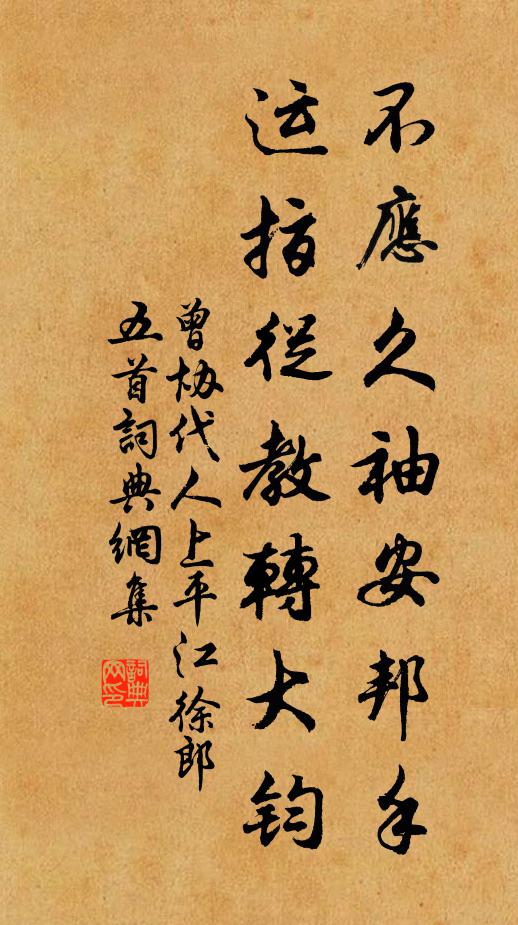 不應久袖安邦手
运指從教轉大鈞
曾协代人上平江徐郎
五首詞典網集
詞典網印